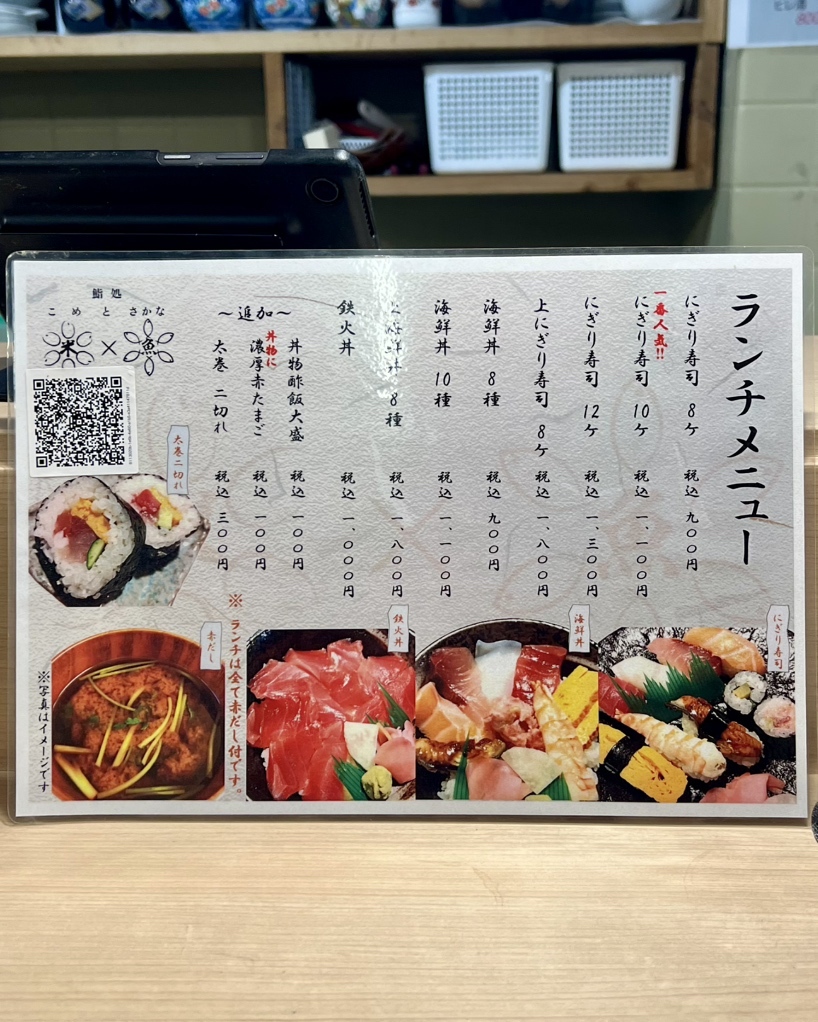 ランチメニュー
にぎり寿司 8ケ 税込 九〇〇円
一番人気!!
にぎり寿司 10ケ 税込 一、一〇〇円
にぎり寿司 12ケ 税込 一、三〇〇円
上にぎり寿司 8ケ 税込 一、八〇〇円
海鮮丼 8種 税込 九〇〇円
海鮮丼 10種 税込 一、一〇〇円
上海鮮丼 8種 税込 一、八〇〇円
鉄火丼 税込 一、〇〇〇円
～追加～
丼物酢飯大盛 税込 一〇〇円
丼物に
濃厚赤たまご 税込 一〇〇円
太巻 二切れ 税込 三〇〇円
鮨処
こめ と さかな
米×魚
太巻二切れ
にぎり寿司
海鮮丼
鉄火丼
※ランチは全て赤だし付です。
赤だし
※写真はイメージです